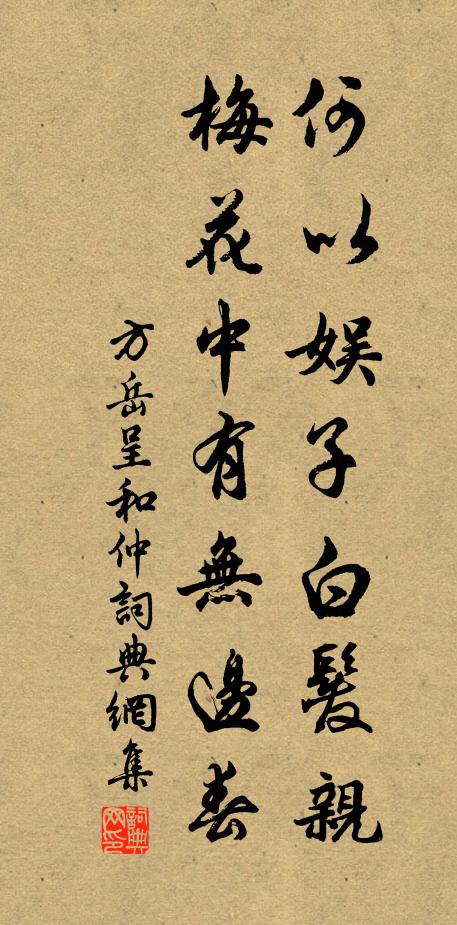 何以娱子白髮親
梅花中有無邊春
方岳呈和仲詞典網集
詞典网印